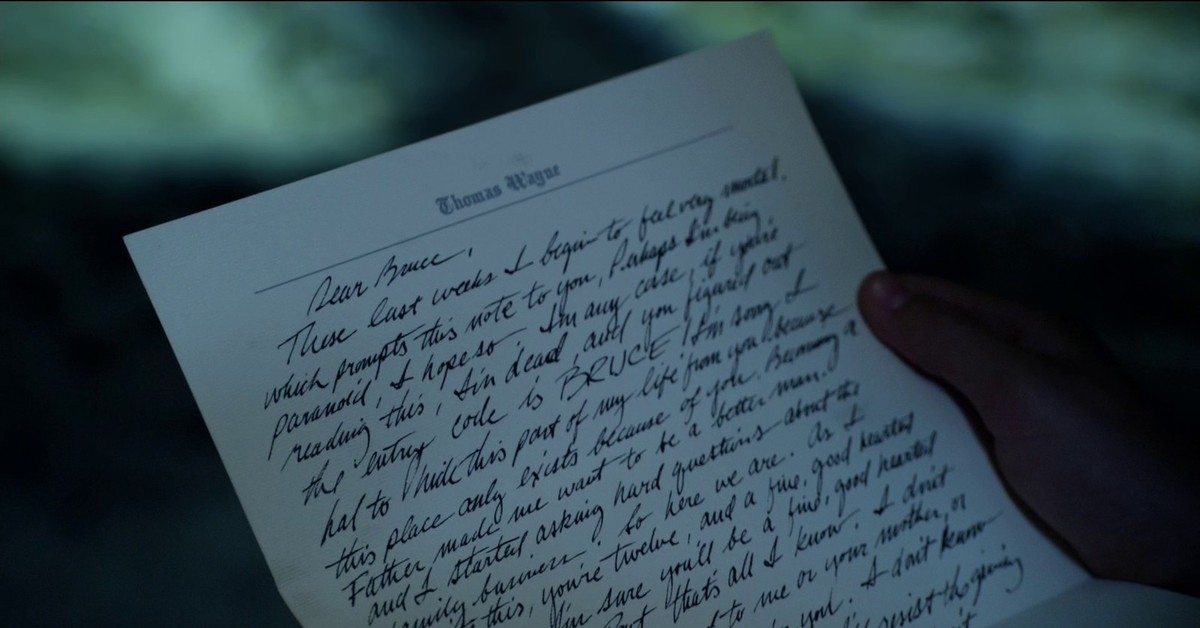 Thomas Wayne
Dear Bruce,
These last weeks I begin to feel very mortal,
which prompts this note to you, Perhaps I'm being
paranoid, I hope so. In any case, if you're
reading this, I'm dead, and you figured out
the entry code is BRUCE. I'm sorry I
had to hide this part of my life from you, because
this place only exists because of you. Becoming a
Father made me want to be a better man.
and I started asking hard questions about the
family business. So here we are. As I
this, you're twelve, and a fine, good hearted
I'm sure you'll be a fine, good hearted
But that's all I know. I don't
to me or your mother, or
you. I don't know
resist the giving